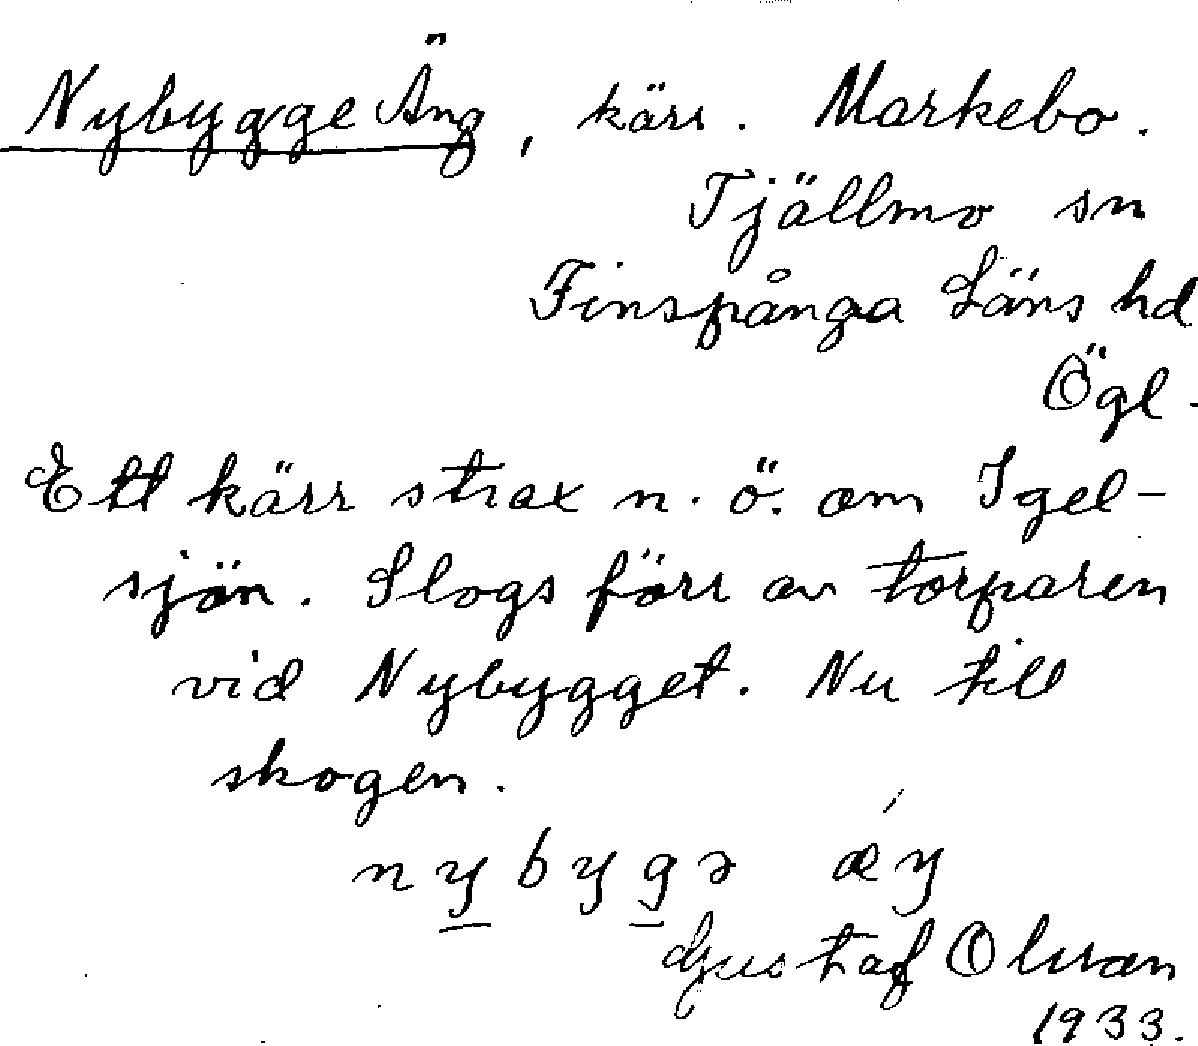 Nybygge Äng, kärr. Markebo.
Tjällmo sn
Finspånga Läns hd
Ögl.
Ett kärr strax n.ö. om Igel-
sjön. Slogs förr av torparen
vid Nybygget. Nu till
skogen.
nybygə æŋ
Gustaf Olsson
1933.